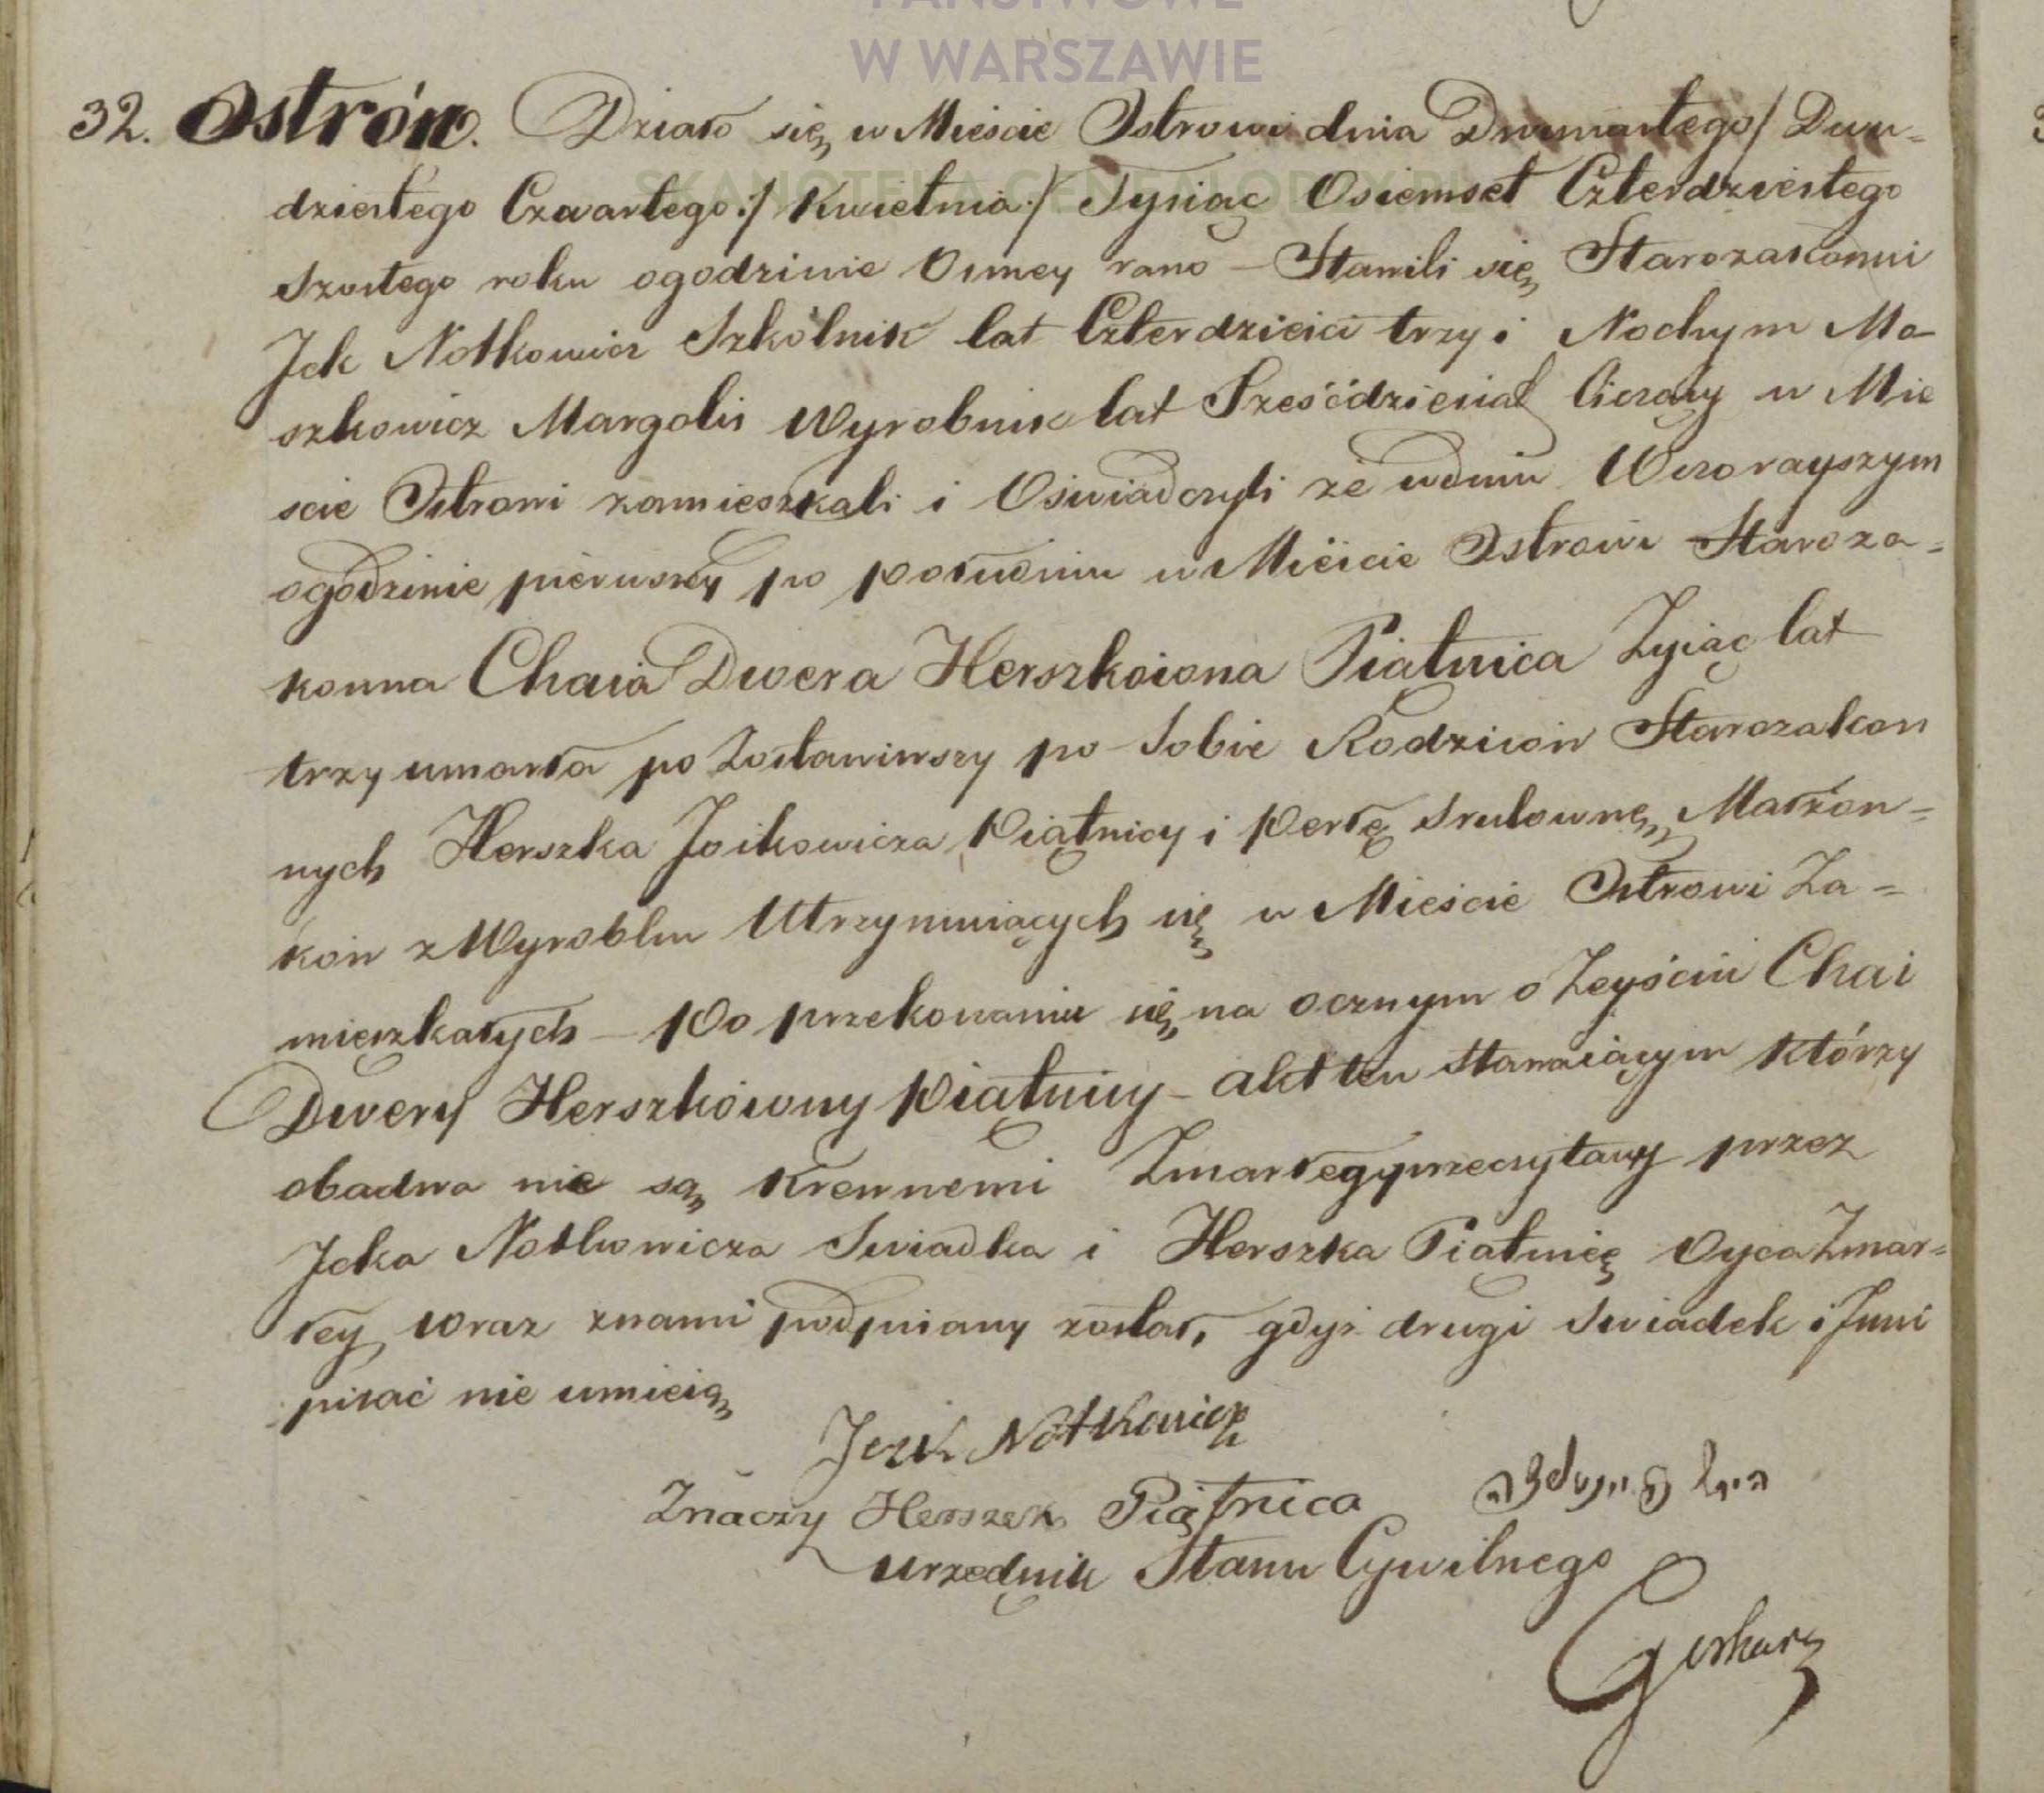 PAŃSTWOWE
W WARSZAWIE
SKANOTEKA GENEALODZY.PL
32. Ostrów. Działo się w Mieście Ostrowi dnia Dwunastego/ Dwu=
dziestego Czwartego:/ Kwietnia:/ Tysiąc Osiemset Czterdziestego
Szostego roku ogodzinie Osmey rano – Stawili się Starozakonni
Jck Notkowicz Szkolnik lat Czterdzieści trzy i Nochym Mo-
szkowicz Margolis Wyrobnik lat Sześćdziesiąt liczący w Mie
scie Ostrowi zamieszkali i Oświadczyli że wdniu Wczorayszym
ogodzinie pierwszey po południu w Mieście Ostrowi Staroza=
konna Chaia Dwera Herszkoiona Piątnica Zyiąc lat
trzy umarła po Zostawiwszy po Sobie Rodziców Starozakon
nych Herszka Joskowicza Piątnicy i Perłę Srulownę Małżon=
ków z Wyroblu Utrzymuiących się w Mieście Ostrowi Za=
mięszkałych – Po przekonaniu się na ocznym o Zeyściu Chai
Dwery Herszkówny Piątnicy – akt ten Stawaiącym którzy
obadwa nie są Krewnemi Zmarłegy przeczytany przez
Jcka Notkowicza Swiadka i Herszka Piątnicę Oyca Zmar=
łey wraz znami podpisany został, gdyż drugi Swiadek i Inni
pisać nie umieią
Jcek Notkowicz
Znaczy Herszek Piątnica
Urzędnik Stanu Cywilnego